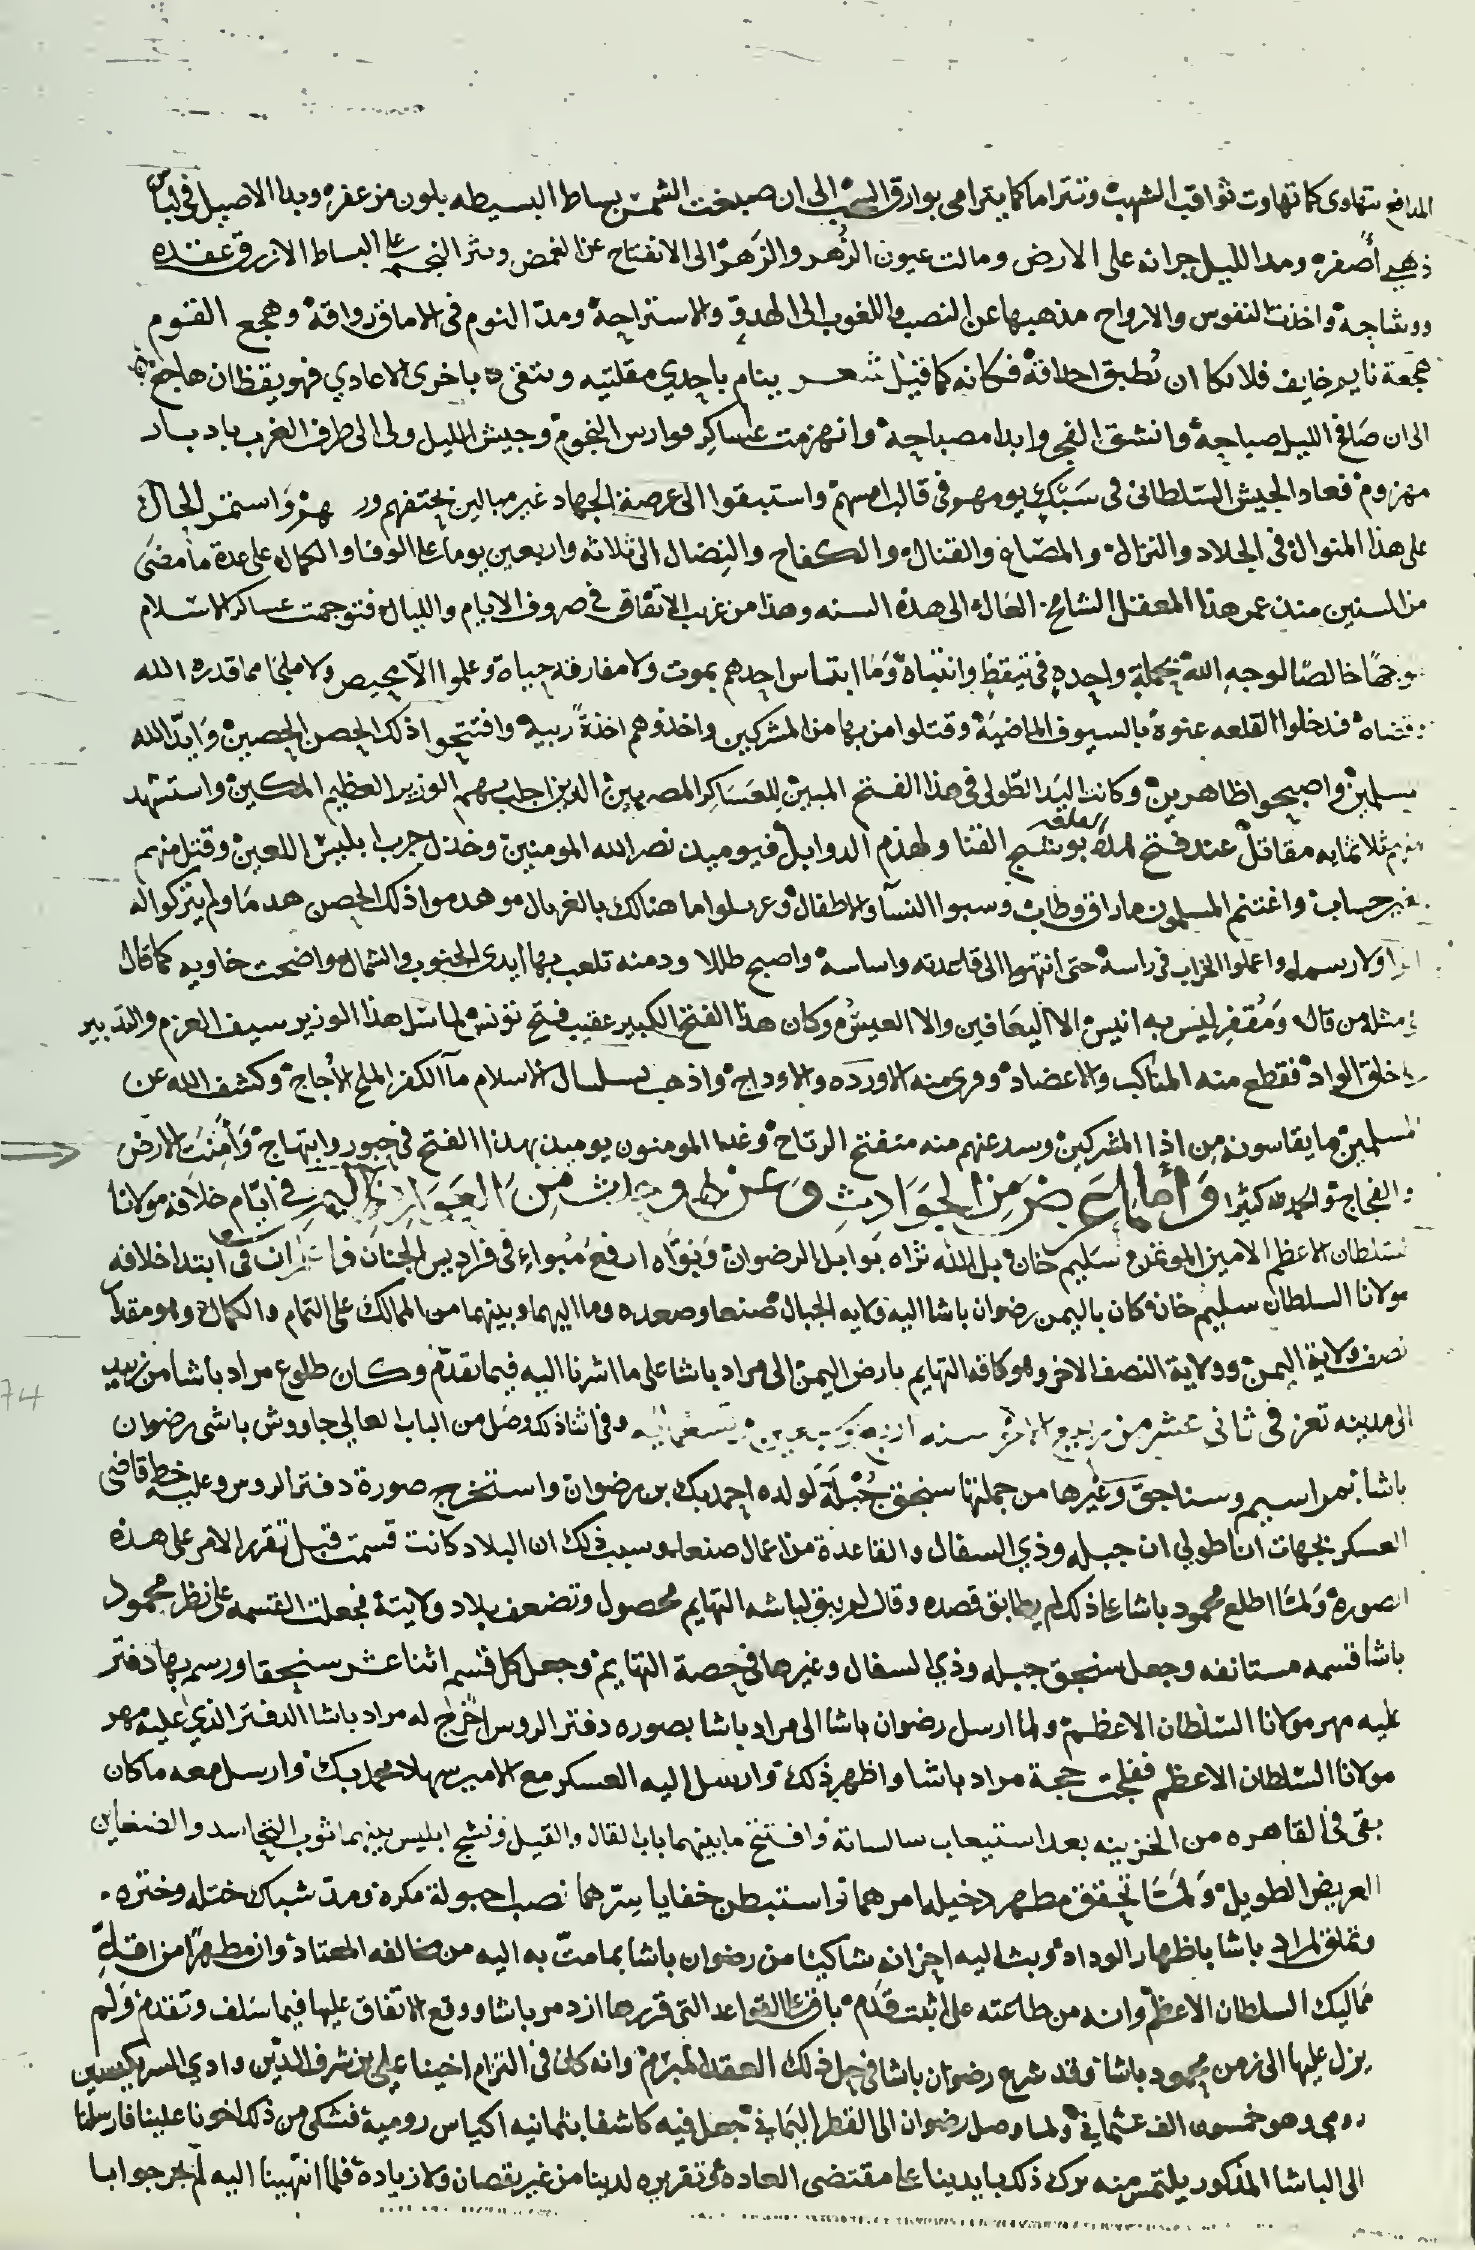 المدافع تتهادى كما تهاوت ثواقب الشهب وتتراما كما يترامى بوارق السحب الى ان صبغت الشمس بساط البسيطه بلون مزعفره وبدا الاصيل في لباس
ذهبي أصفره ومد الليل جرانه على الارض ومالت عيون الزُهر والزَهر الى الانفتاح عن الغمض ونثر النجم على البساط الازرق عقده
ووشاحه واخذت النفوس والارواح مذهبها عن النصب واللغوب الى الهدوّ والاستراحة ومدّ النوم في الاماق رواقة وهجع القوم
هجعة نايم خايف فلا تكا ان تُطبق احداقة فكانه كما قيل شعر ينام باحدي مقلتيه ويتقي باخرى الاعادي فهو يقظان هاجع
الى ان صافح الليل صباحة وانشق الفجر وابدا مصباحة وانهزمت عساكر فوارس النجوم وجيش الليل ولى الى طرف الغرب بادبار
مهزوم فعاد الجيش السلطاني في سَبْك يومهم في قالب امسهم واستبقوا الى عرصة الجهاد غير مبالين بحتفهم واستمر الحال
على هذا المنوال في الجلاد والنزال والمصاع والقتال والكفاح والنِضال الى ثلاثه واربعين يوما على الوفا والكمال على عدة ما مضى
من السنين منذ عمر هذا المعقل الشامخ العال الى هذه السنه وهذا من غريب الاتفاق في صروف الايام والليال فتوجهت عساكر الاسلام
توجها خالصًا لوجه الله بحملة واحدهٍ في تيقظ وانتباه وَمَا ابتاس احدهم بموت ولا مفارقة حياة وعلموا الا محيص ولا ملجا مما قدره الله
وقضاه فدخلوا القلعه عنوة بالسيوف الماضيَة وقتلوا من بها من المشركين واخذوهم اخذةً رابية وافتتحوا ذلك الحصن الحصين وَايّد الله
المسلمين واصبحوا ظاهرين وكانت اليَد الطولى في هذا الفتح المبين لِلعَسَاكِر المصريين الذين اجلب بهم الوزير العظيم المكين واستشهد
منهم ثلاثمايه مقاتل عند فتح القلعه بوشيج القنا ولهذم الذوابل فيوميذ نصر الله المومنين وخذل حرب ابليس اللعين وقتل منهم
بغير حساب واغتنم المسلمون ما راق وطاب وسبوا النسآ والاطفال وغربلوا ما هنالك بالغربال وهدموا ذلك الحصن هدمَا ولم يتركوا له
اثرا ولا رسما واعملوا الخراب في راسه حتى انتهوا الى قاعدته واساسه واصبح طللا ودمنه تلعب بها ايدى الجنوب والشمال واضحت خاويه كما قال
في مثله من قال وَمُقفِر ليس به انيس الا اليعافين والا العيسُ وكان هذا الفتح الكبير عقيب فتح تونس لما سَل هذا الوزير سيف العزم والتدبير
في خلق الواد فقطع منه المناكب والاعضاد وفرى منه الاورده والاوداج واذهب بسلسال الاسلام مآ الكفر الملح الاُجاج وكشف الله عن
المسلمين ما يقاسونه مِن اذا المشركين وسد عنهم منه منفتح الرتاج وغدا المومنون يوميذ بهذا الفتح في حبور وابتهاج وَأَمِنَت الارض
والفجاج والحمد لله كثيرا وَأما مَا عَرضَ مِن الحوَادِثِ وَعنّ وحدث مِنَ العَوَارض باليمن في ايّام خلافه مولانا
السلطان الاعظم الامين الموتمن سَليم خان بل الله ثراه بوابل الرضوان وَبَوّاه ارفع مُبواءٍ في فراديس الجنان في ابتدا خلافه
مولانا السلطان سليم خان كان باليمن رضوان باشا اليه ولايه الجبال صنعا وصعده وما اليهما وبينهما من الممالك على التمام والكمال وهو مقدار
نصف ولاية اليمن وولاية النصف الاخر وهو كافه التهايم بارض اليمن الى مراد باشا على ما اشرنا اليه فيما تقدّم وكان طلوع مراد باشا من زبيد
الى مدينه تعز في ثاني عشر من ربيع الاخر سنه اربع وسبعين وتسعمايه وفي اثنا ذلك وصل من الباب العالي جاووش باشى رضوان
باشا بمراسيم وسناجق وَغيْرها من جملتها سنجق جُبْلة لولده احمد بك بن رضوان واستخرج صورة دفتر الروس وعليه خط قاضى
العسكر بجهات اناطولي ان جبله وذي السفال والقاعدة من اعمال صنعا وسبب ذلك ان البلاد كانت قسمت قبل تقرر الامر على هذه
الصورة وَلمّا اطلع محمود باشا على ذلك لم يطابق قصده وقال لم يبق لباشه التهايم محصول وتضعف بلاد ولايتة فجعلت القسمه على نظر محمود
باشا قسمه مستانفه وجعل سنجق جبله وذي السفال وغيرها في حصة التهايم وجعل كل قسم اثنا عشر سنجقا ورسم بها دفتر
عليه مهر مولانا السلطان الاعظم ولما ارسل رضوان باشا الى مراد باشا بصوره دفتر الروس اخرج له مراد باشا الدفتر الذي عليه مهر
مولانا السلطان الاعظم ففلجت حجة مراد باشا واظهر ذلك وارسل اليه العسكر مع الامير سهلا محمد بك وارسل معه ما كان
بقى في القاهره من الخزينه بعد استيعاب سالساته وافتتح ما بينهما باب القال والقيل ونسج ابليس بينهما ثوب التحاسد والضغاين
العريض الطويل وَلمّا تحقق مطهر دخيل امرهما واستبطن خفايا سِرّهما نصب احبولة مكره ومدّ شباك ختله وختره
وتملق لمراد باشا باظهار الوداد وبث اليه احزانه شاكيا من رضوان باشا بما متّ به اليه من مخالفه المعتاد وان مطهرًا من اقلّ
مماليك السلطان الاعظم وانه من طاعته على اثبت قدَم باق على القواعد التى قررها ازدمر باشا ووقع الاتفاق عليها فيما سَلف وتقدم وَلم
يزل عليها الى زمن محمود باشا وقد شرع رضوان باشا في حل ذلك العقد المبرَم وانه كان في التزام اخينا علي بن شرف الدين وادي السر بكيسين
رومي وهو خمسون الف عثماني ولما وصل رضوان الى القطر اليَماني جعل فيه كاشفا بثمانيه اكياس رومية فشكى من ذلك اخونا علينا فارسلنا
الى الباشا المذكور يلتمس منه ترك ذلك بايدينا على مقتضى العاده في تقريره لدينا من غير نقصان ولا زيادة فلما انتهينا اليه لم يُحر جوابا